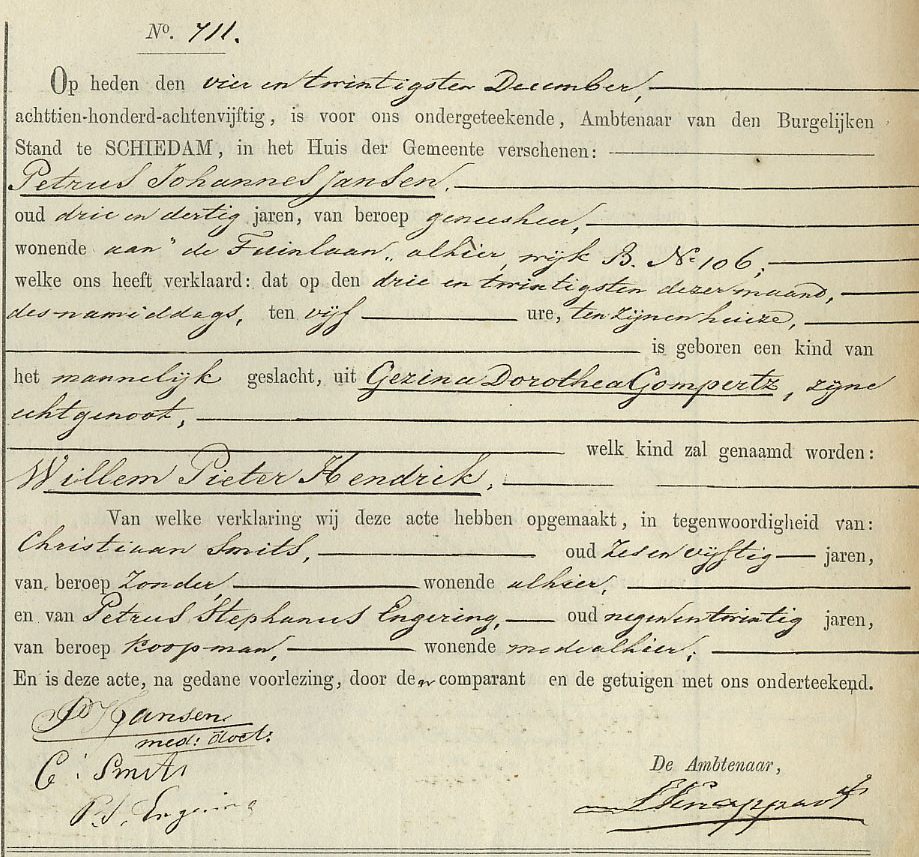 No. 711.
Op heden den vier en twintigsten December,
achttien-honderd-achtenvijftig, is voor ons ondergeteekende, Ambtenaar van den Burgelijken
Stand te SCHIEDAM, in het Huis der Gemeente verschenen:
Petrus Johannes Jansen,
oud drie en dertig jaren, van beroep geneesheer,
wonende aan "de Tuinlaan" alhier, wijk B. No 106,
welke ons heeft verklaard: dat op den drie en twintigsten dezer maand,
des namiddags, ten vijf ure, ten zijnen huize,
is geboren een kind van
het mannelijk geslacht, uit Gezina Dorothea Gompertz, zijne
echtgenoot,
welk kind zal genaamd worden:
Willem Pieter Hendrik,
Van welke verklaring wij deze acte hebben opgemaakt, in tegenwoordigheid van:
Christiaan Smits, oud zes en vijftig jaren,
van beroep zonder, wonende alhier,
en van Petrus Stephanus Engering, oud negen en twintig jaren,
van beroep koopman, wonende mede alhier;
En is deze acte, na gedane voorlezing, door den comparant en de getuigen met ons onderteekend.
Jansen
med: doct:
C: Smits
P.S. Engering
De Ambtenaar,